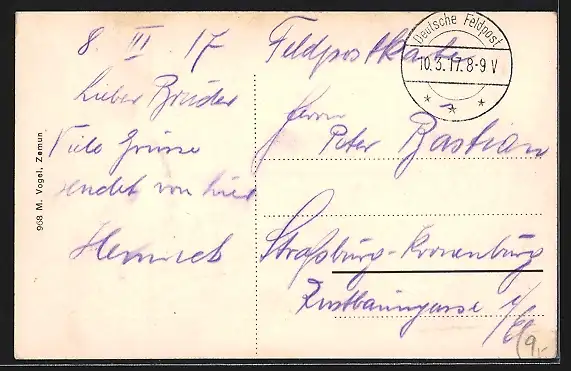 8. III. 17
Lieber Bruder
Viele Grüsse
sendet von hier
Heinrich
968 M. Vogel, Zemun
Feldpostkarte
Deutsche Feldpost
10.3.17.8-9 V
Herrn
Peter Bastian
Straßburg-Kronenburg
i/Els
9,-